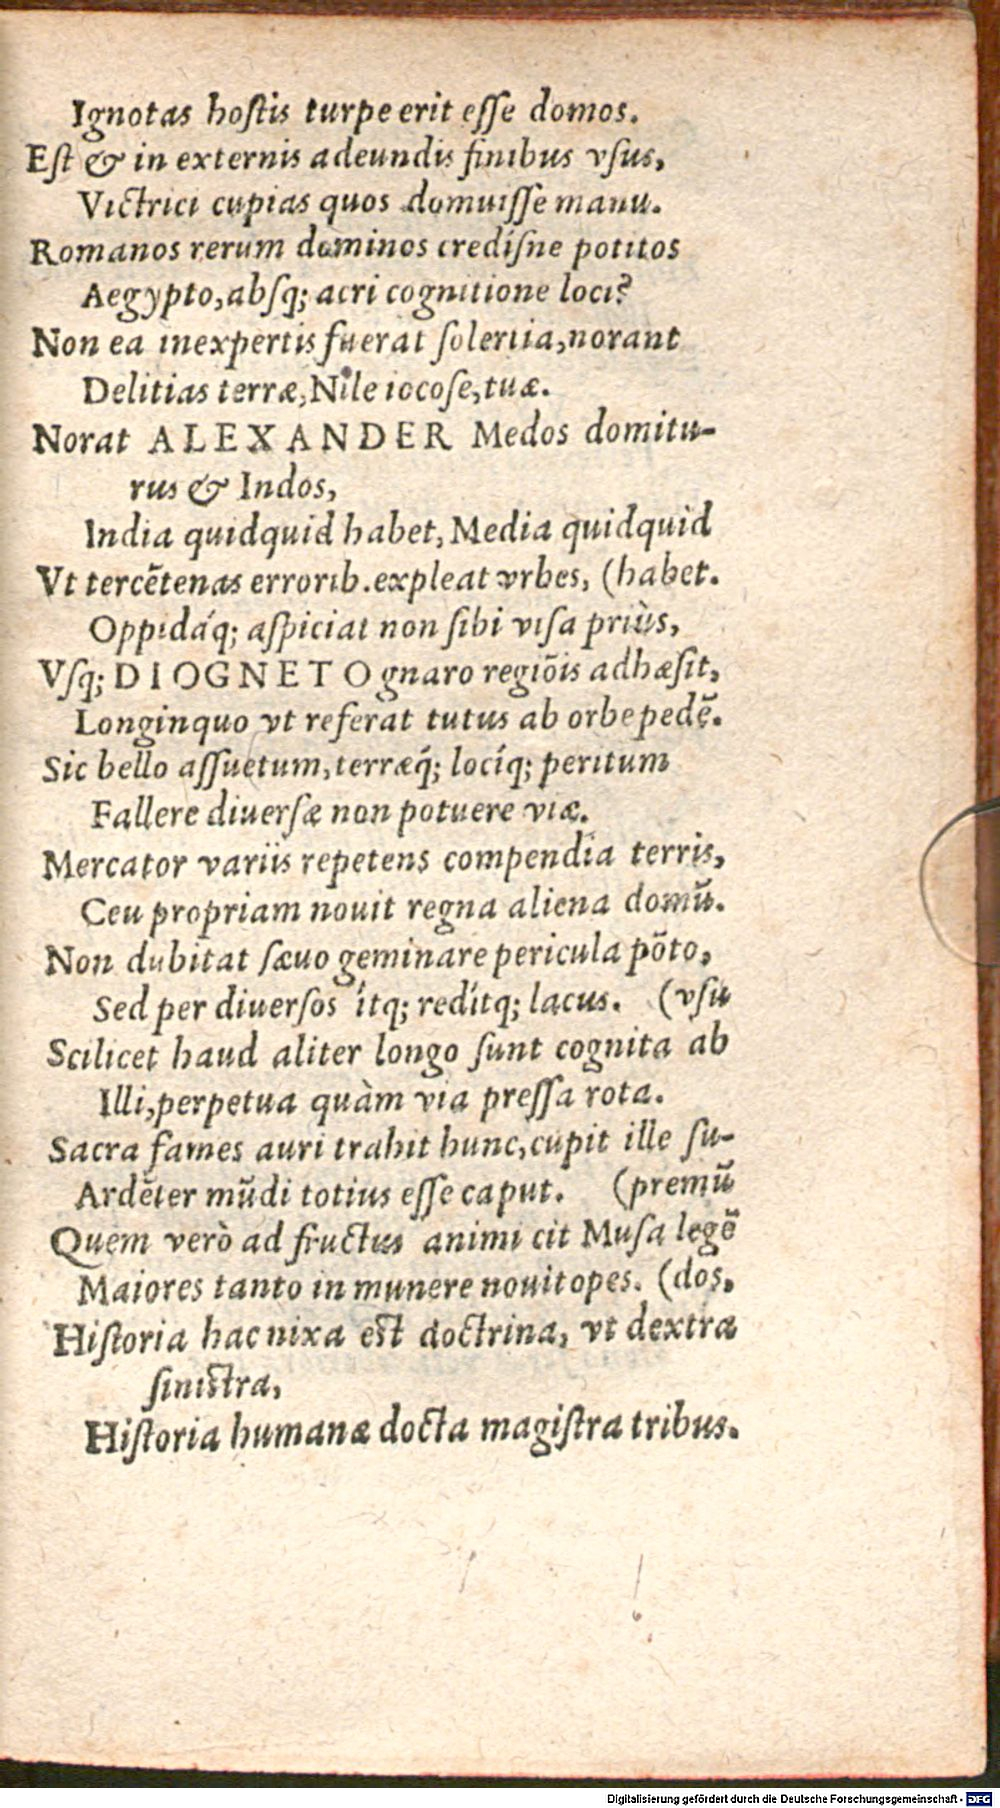 Ignotas hoſtis turpe erit eſſe domos.
Eſt & in externis adeundis finibus vſus,
Victrici cupias quos domuiſſe manu.
Romanos rerum dominos crediſne potitos
Aegypto, abſq; acri cognitione loci?
Non ea inexpertis fuerat ſolertia, norant
Delitias terræ, Nile iocoſe, tuæ.
Norat ALEXANDER Medos domitu-
rus & Indos,
India quidquid habet, Media quidquid
Vt tercẽtenas errorib. expleat vrbes, (habet.
Oppidáq; aſpiciat non ſibi viſa priùs,
Vſq; DIOGNETO gnaro regiõis adhæſit,
Longinquo vt referat tutus ab orbe pedẽ.
Sic bello aſſuetum, terræq́; locíq; peritum
Fallere diuerſæ non potuere viæ.
Mercator variis repetens compendia terris,
Ceu propriam nouit regna aliena domũ.
Non dubitat ſæuo geminare pericula põto,
Sed per diuerſos ítq; redítq; lacus. (vſu
Scilicet haud aliter longo ſunt cognita ab
Illi, perpetua quàm via preſſa rota.
Sacra fames auri trahit hunc, cupit ille ſu-
Ardẽter mũdi totius eſſe caput. (premũ
Quem verò ad fructus animi cit Muſa legẽ
Maiores tanto in munere nouit opes. (dos,
Hiſtoria hac nixa eſt doctrina, vt dextra
ſiniſtra,
Hiſtoria humanæ docta magiſtra tribus.
Digitalisierung gefördert durch die Deutsche Forschungsgemeinschaft - DFG